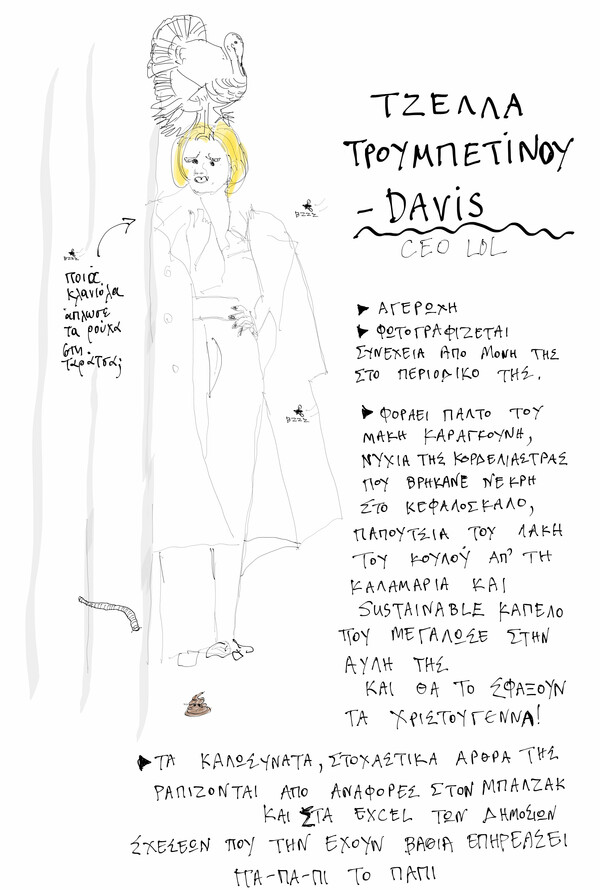 ΤΖΕΛΛΑ
ΤΡΟΥΜΠΕΤΙΝΟΥ
- DAVIS
CEO LOL
BZZZ
BZZZ
ποιός
κλανιόλα
άπλωσε
τα ρούχα
στη
ταράτσα;
► ΑΓΕΡΩΧΗ
► ΦΩΤΟΓΡΑΦΙΖΕΤΑΙ
ΣΥΝΕΧΕΙΑ ΑΠΟ ΜΟΝΗ ΤΗΣ
ΣΤΟ ΠΕΡΙΟΔΙΚΟ ΤΗΣ.
BZZZ
► ΦΟΡΑΕΙ ΠΑΛΤΟ ΤΟΥ
ΜΑΚΗ ΚΑΡΑΓΚΟΥΝΗ,
ΝΥΧΙΑ ΤΗΣ ΚΟΡΔΕΛΙΑΣΤΡΑΣ
ΠΟΥ ΒΡΗΚΑΝΕ ΝΕΚΡΗ
ΣΤΟ ΚΕΦΑΛΟΣΚΑΛΟ,
ΠΑΠΟΥΤΣΙΑ ΤΟΥ ΛΑΚΗ
ΤΟΥ ΚΟΥΛΟΥ ΑΠ' ΤΗ
ΚΑΛΑΜΑΡΙΑ ΚΑΙ
SUSTAINABLE ΚΑΠΕΛΟ
ΠΟΥ ΜΕΓΑΛΩΣΕ ΣΤΗΝ
ΑΥΛΗ ΤΗΣ
ΚΑΙ ΘΑ ΤΟ ΣΦΑΞΟΥΝ
ΤΑ ΧΡΙΣΤΟΥΓΕΝΝΑ!
► ΤΑ ΚΑΛΟΣΥΝΑΤΑ, ΣΤΟΧΑΣΤΙΚΑ ΑΡΘΡΑ ΤΗΣ
ΡΑΠΙΖΟΝΤΑΙ ΑΠΟ ΑΝΑΦΟΡΕΣ ΣΤΟΝ ΜΠΑΛΖΑΚ
ΚΑΙ ΣΤΑ EXCEL ΤΩΝ ΔΗΜΟΣΙΩΝ
ΣΧΕΣΕΩΝ ΠΟΥ ΤΗΝ ΕΧΟΥΝ ΒΑΘΙΑ ΕΠΗΡΕΑΣΕΙ
ΠΑ-ΠΑ-ΠΙ ΤΟ ΠΑΠΙ